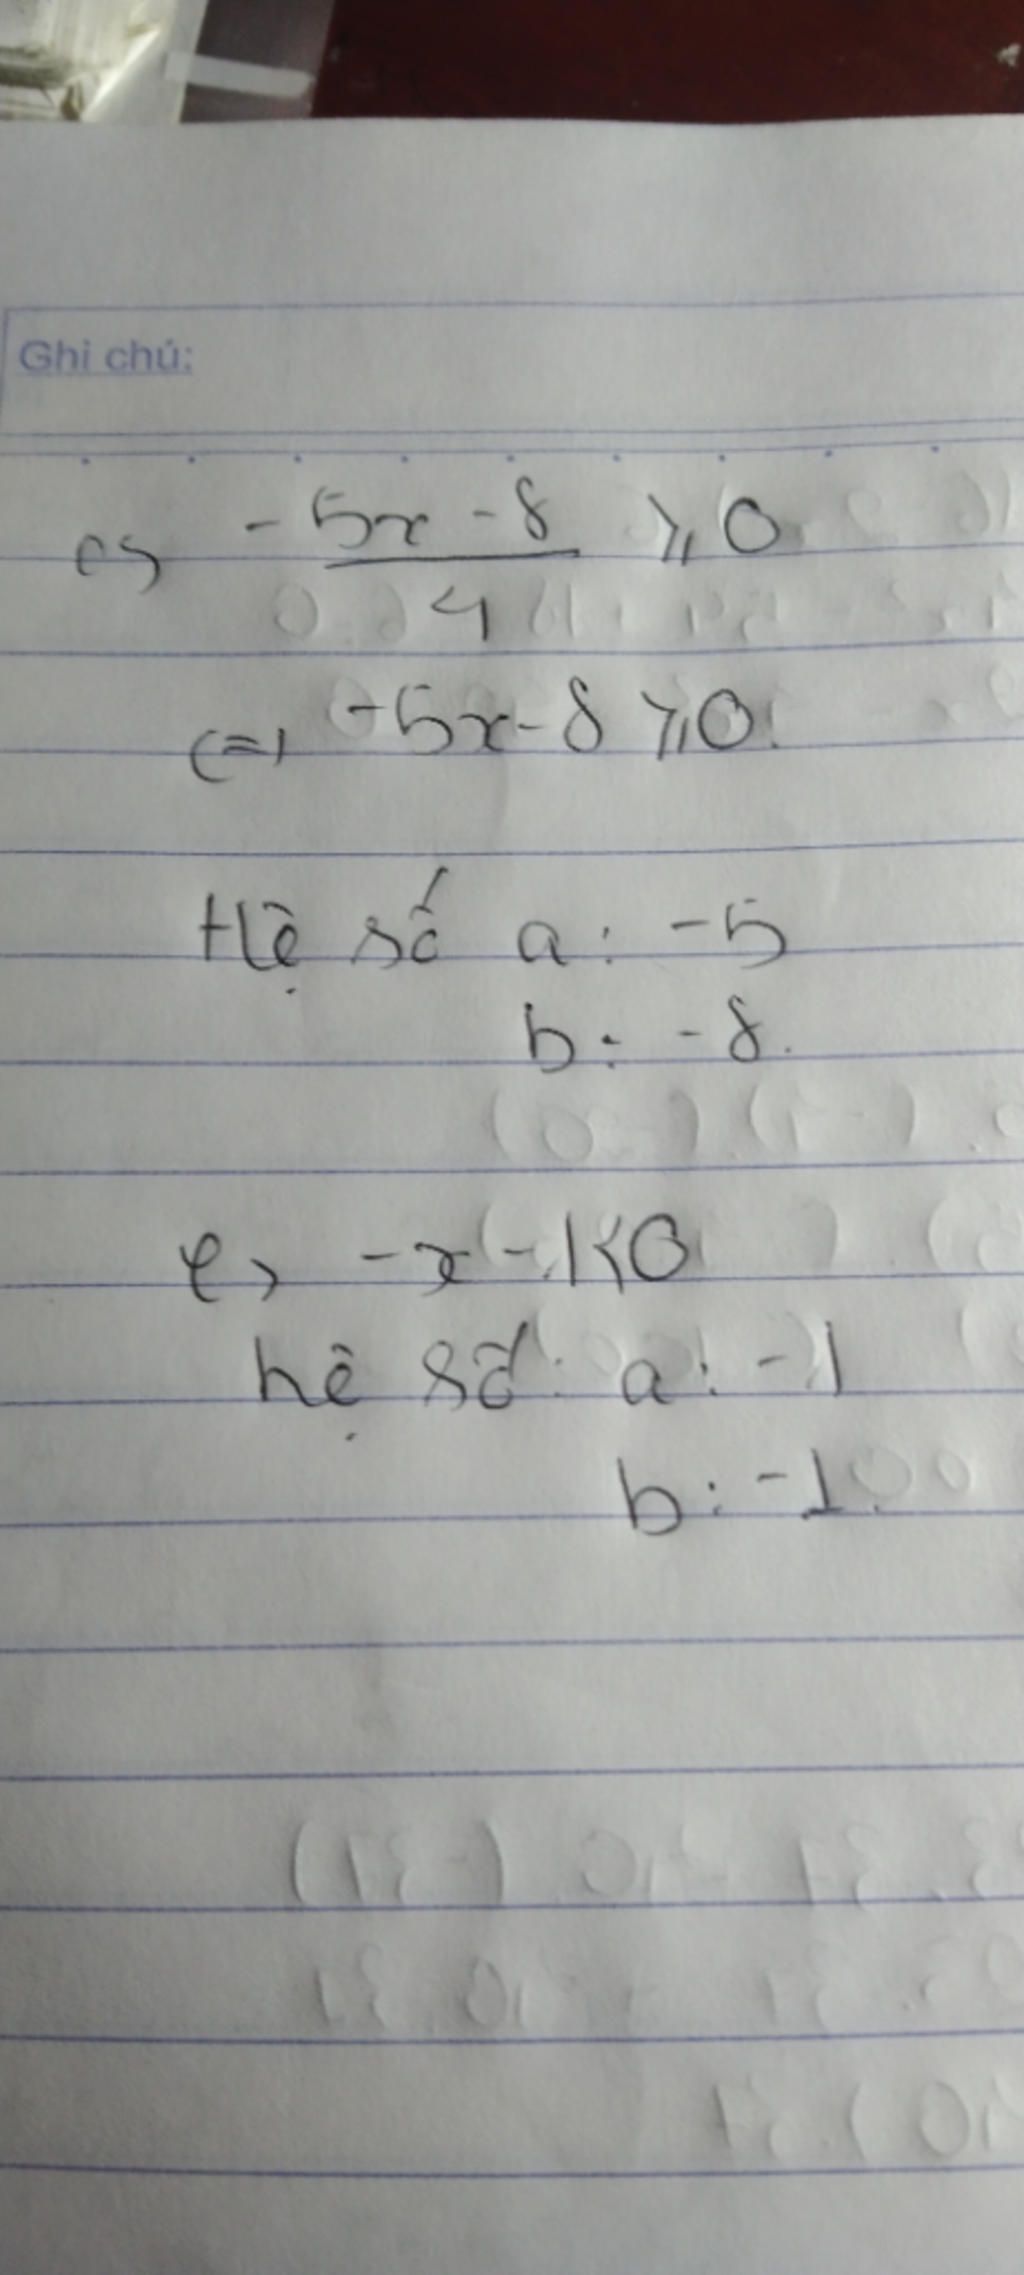 Ghi chú:
c) -5x - 8 / 4 ≥ 0
<=> -5x - 8 ≥ 0
Hệ số a: -5
b: -8.
e) -x - 1 < 0
hệ số: a: -1
b: -1.